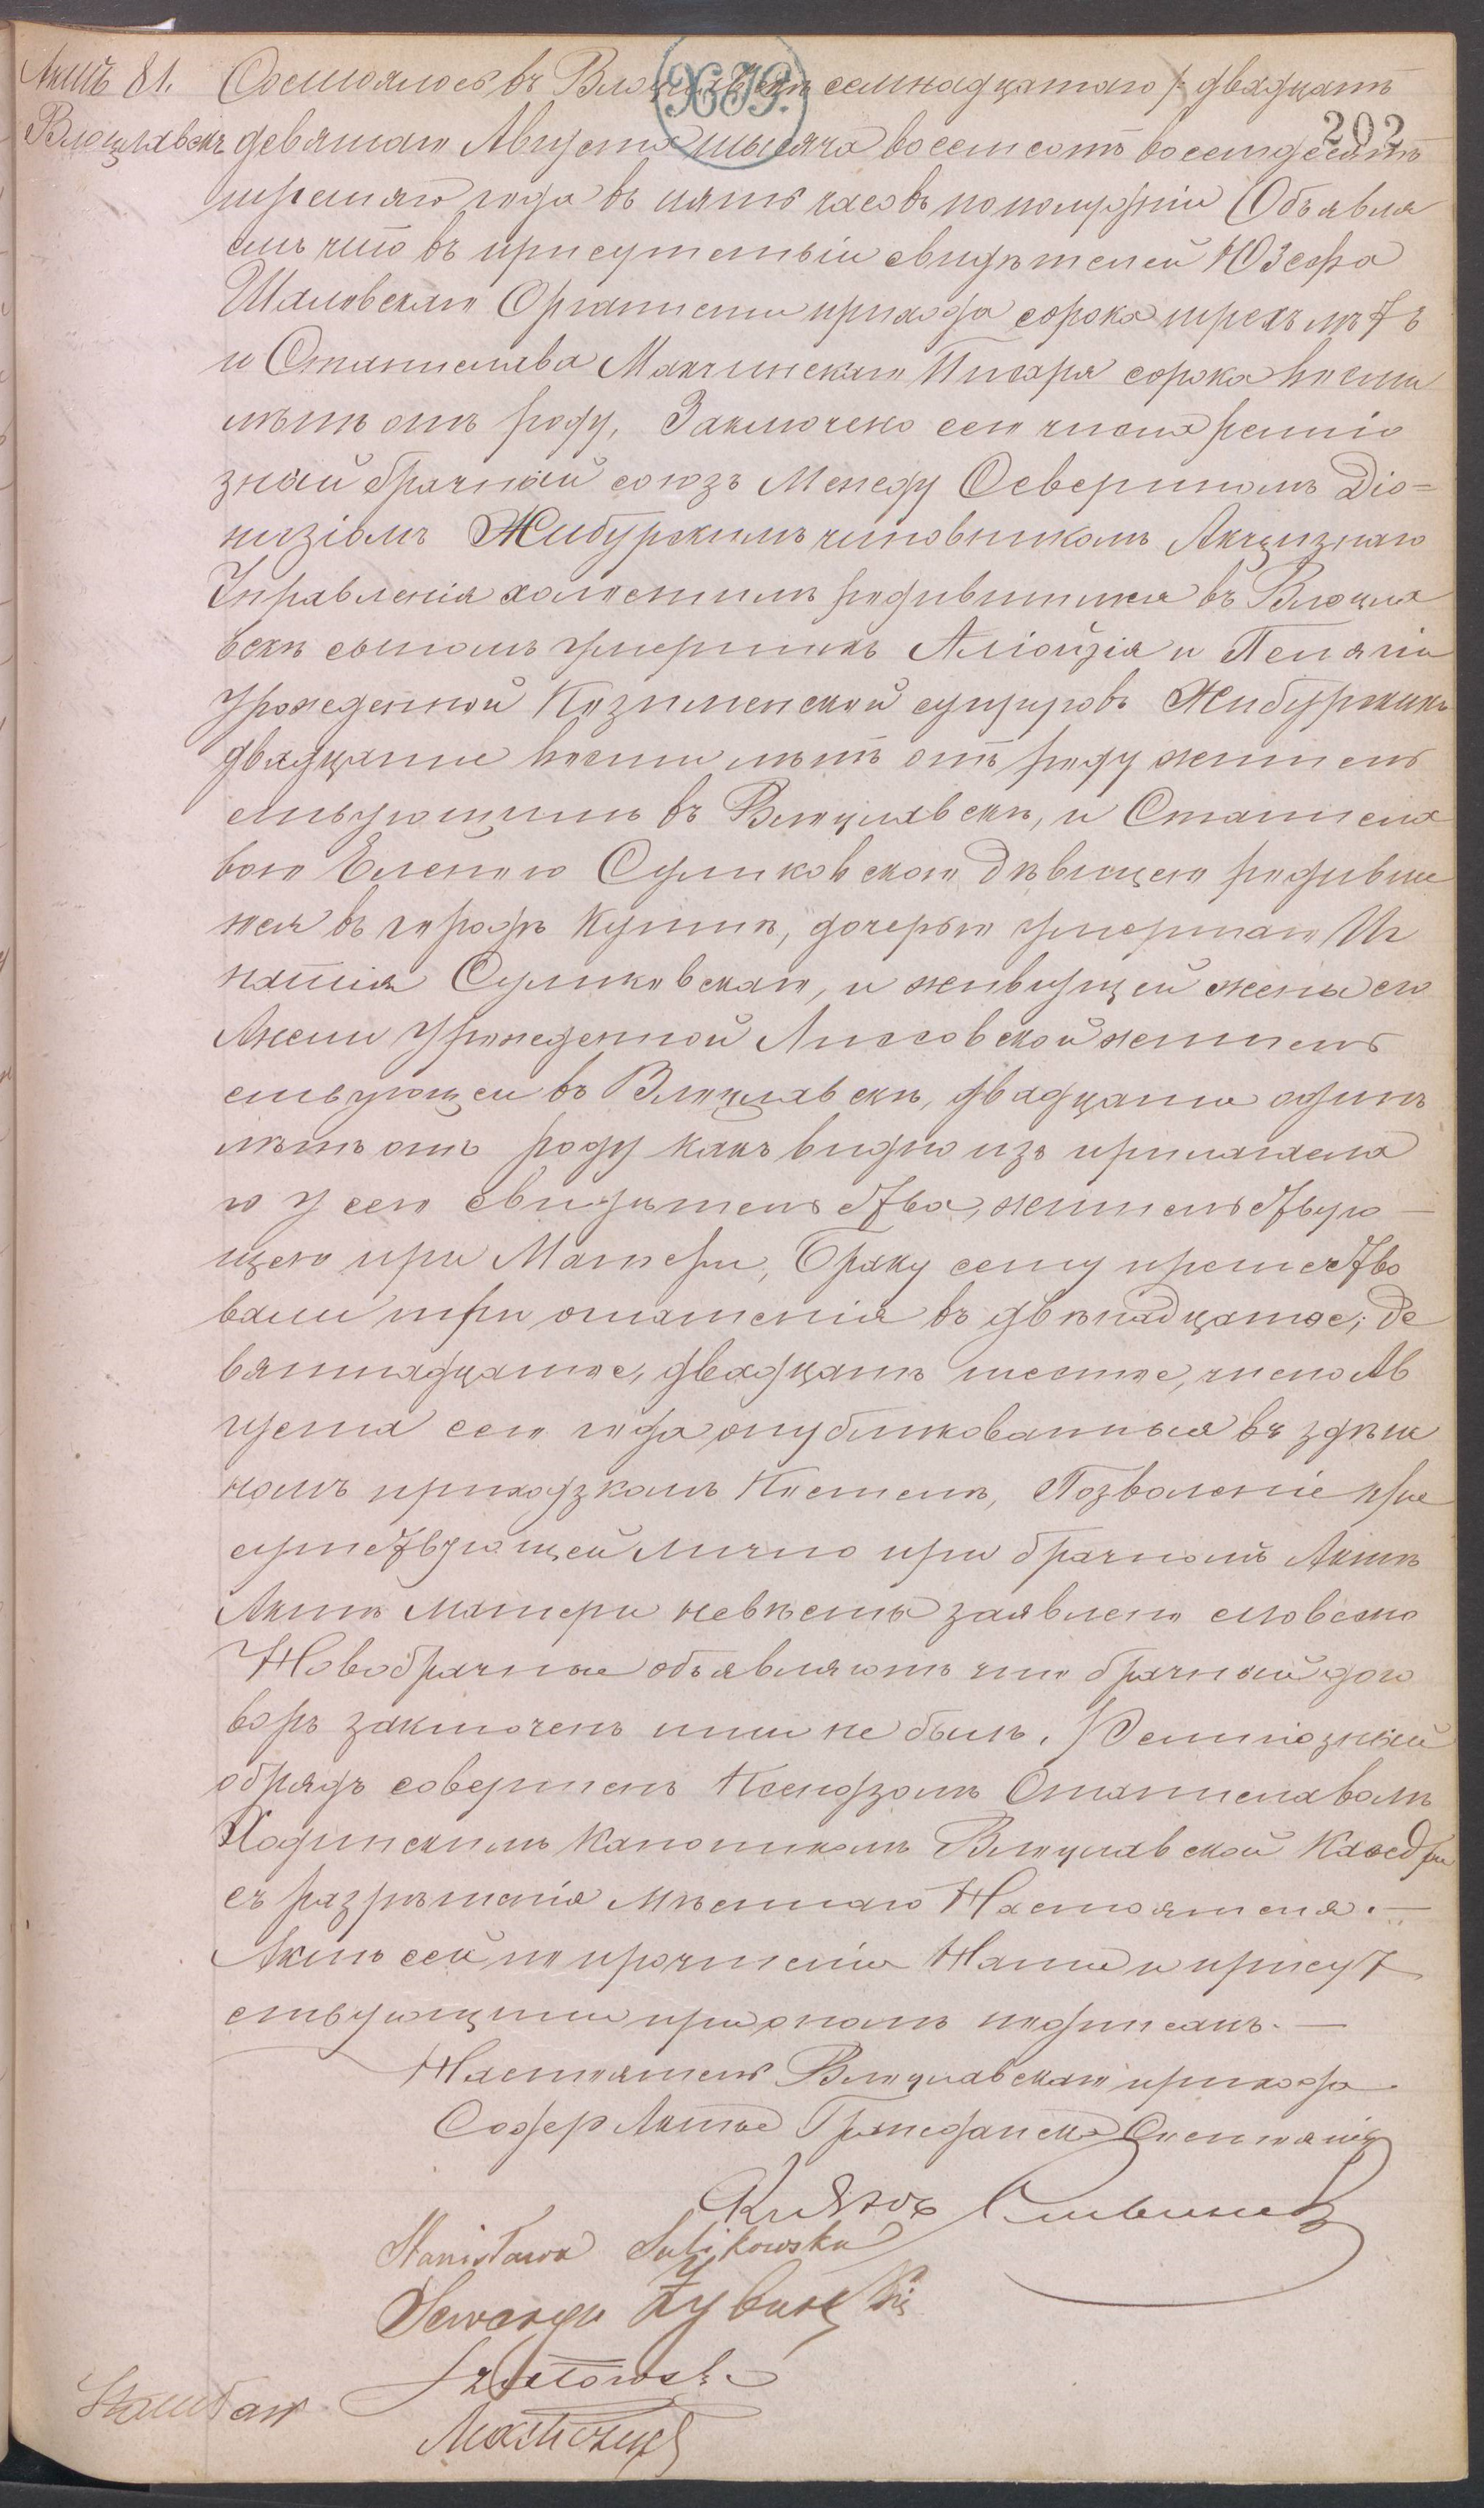 Актъ 81. Состоялось въ Влоцлавскѣ семнадцатаго /: двадцать
202
Влоцлавскъ девятаго Августа тысяча восемсотъ восемдесятъ
третяго года въ пять часовъ пополудни Объявля
емъ что въ присутствіи свидѣтелей Юзефа
Шаловскаго Органисты прихода сорока трехъ лѣтъ
и Станислава Макчинскаго Писаря сорока восми
лѣтъ отъ роду, Заключено сего числа религіо
зный брачный союзъ Между Севериномъ Діо=
низіомъ Жибурскимъ чиновникомъ Акцизнаго
Управленія холостымъ родившимся въ Влоцла
вскѣ сыномъ умершихъ Алойзія и Пелагіи
урожденной Козименской супруговъ Жибурскихъ
двадцати восми лѣтъ отъ роду житель
ствующимъ въ Влоцлавскѣ, и Станисла
вою Еленою Суликовскою дѣвицею родивше
юся въ городѣ Кутнѣ, дочерью умершаго Иг
натія Суликовскаго, и живущей жены его
Анели урожденной Лиссовской житель
ствующей въ Влоцлавскѣ, двадцати одинъ
лѣтъ отъ роду какъ видно изъ прилагаема
го у сего свидѣтельства, жительствую—
щею при Матери, Браку сему предшество
вали три оглашенія въ двѣнадцатое; де
вятнадцатое, двадцать шестое, число Ав
густа сего года опубликованныя въ здѣш
номъ приходзкомъ Костелѣ, Позволеніе при
сутствующей лично при брачномъ Актѣ
Актѣ матери невѣсты заявлено словесно
Новобрачные объявляютъ что брачный дого
воръ заключенъ ими не былъ. Религіозный
обрядъ совершенъ Ксендзомъ Станиславомъ
Ходинскимъ Каноникомъ Влоцлавской Каѳедры
съ разрѣшенія мѣстнаго Настоятеля.—
Актъ сей по прочтеніи Нами и присут
ствующими при ономъ подписанъ.—
Настоятель Влоцлавскаго прихода
Содер Акты Гражданскаго Состоянія
Stanisława Sulikowska
Seweryn Żyburski
Szałowski